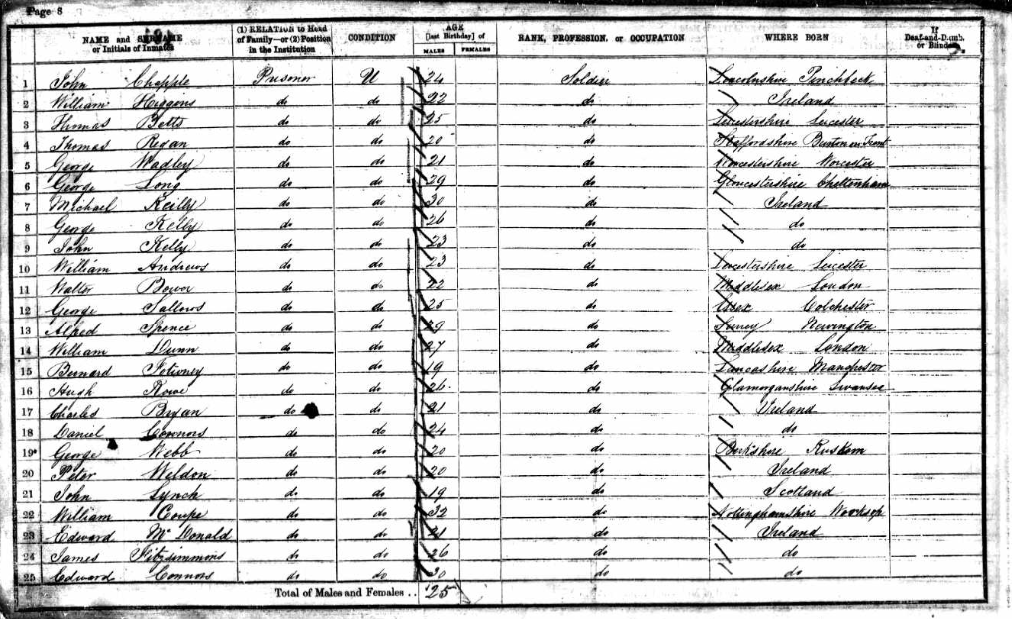 Page 8
NAME and SURNAME or Initials of Inmates (1) RELATION to Head of Family—or (2) Position in the Institution CONDITION AGE [last Birthday] of MALES FEMALES RANK, PROFESSION, or OCCUPATION WHERE BORN If Deaf-and-Dumb, or Blind
1 John Chapple Prisoner U 24 Soldier Lincolnshire Pinchbeck
2 William Higgons do do 22 do Ireland
3 Thomas Betts do do 25 do Leicestershire Leicester
4 Thomas Regan do do 20 do Staffordshire Burton on Trent
5 George Wadley do do 21 do Worcestershire Worcester
6 George Long do do 29 do Gloucestershire Cheltenham
7 Michael Reilly do do 30 do Ireland
8 George Kelly do do 26 do do
9 John Kelly do do 23 do do
10 William Andrews do do 23 do Leicestershire Leicester
11 Walter Bower do do 22 do Middlesex London
12 George Sallows do do 25 do Essex Colchester
13 Alfred Spence do do 29 do Surrey Newington
14 William Dunn do do 27 do Middlesex London
15 Bernard do do 19 do Lancashire Manchester
16 Hugh Rowe do do 26 do Glamorganshire Swansea
17 Charles Bryan do do 21 do Ireland
18 Daniel Connors do do 24 do do
19 George Webb do do 20 do Berkshire
20 Peter Weldon do do 20 do Ireland
21 John Lynch do do 19 do Scotland
22 William Coupe do do 32 do Nottinghamshire Worksop
23 Edward McDonald do do 21 do Ireland
24 James Fitzsimmons do do 26 do do
25 Edward Connors do do 30 do do
Total of Males and Females .. 25